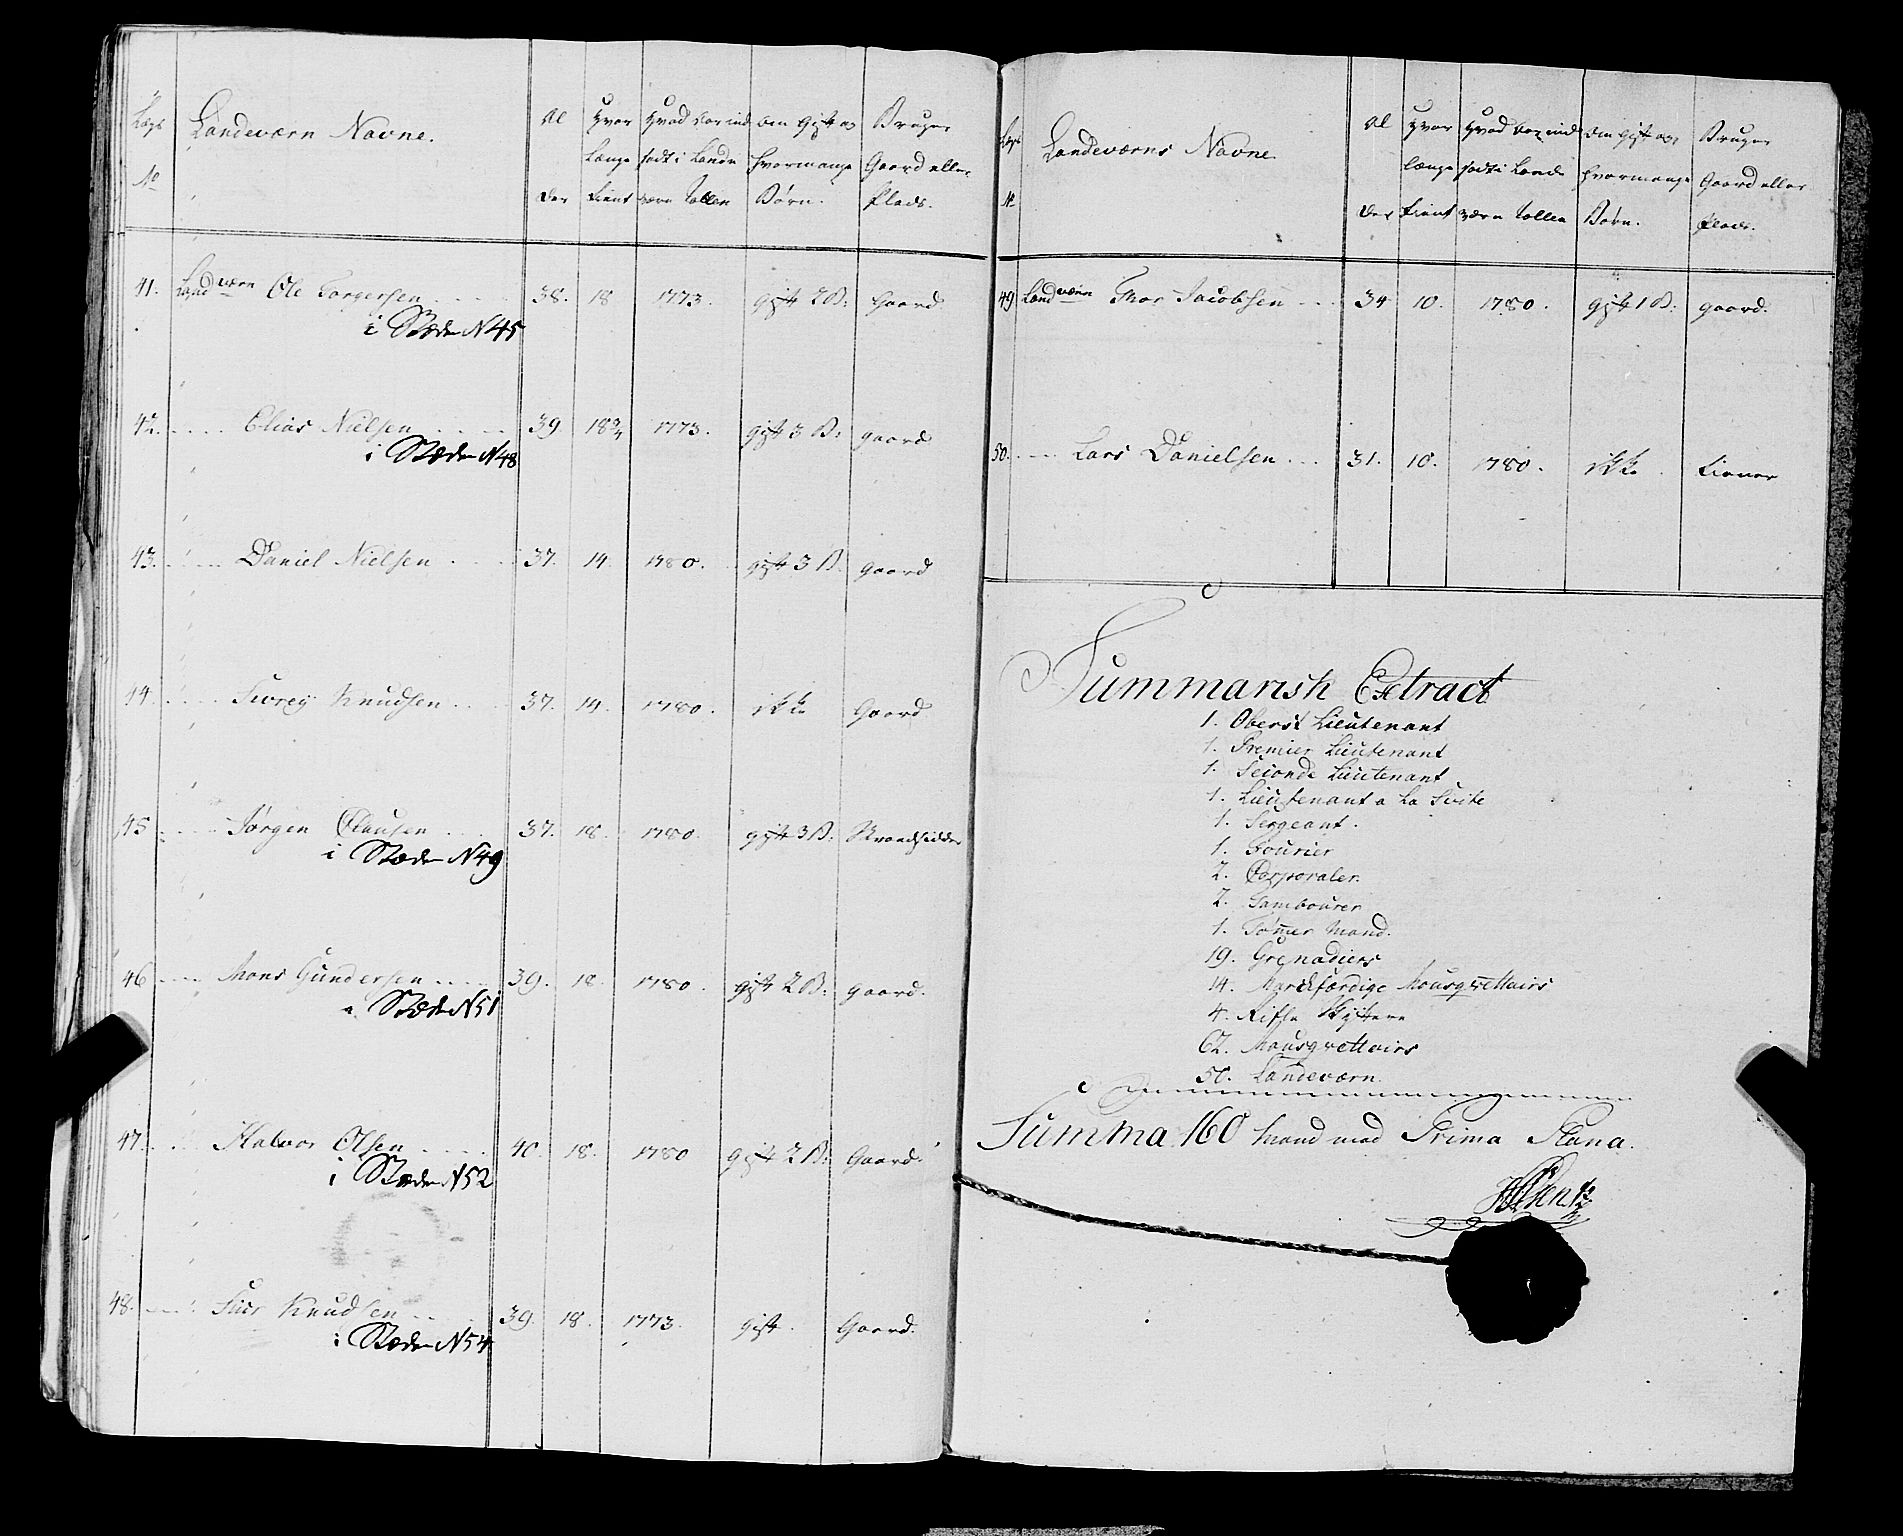 Lægs No
Landeværn Navne.
Al der
Hvor Længe tient
Hvad Aar ind sadt i Lande værn Rollen
Om Gift og hvormange Børn.
Bruger Gaard eller Plads.
41. Landværn Ole Torgersen 38. 18 1773. gift 2 B: Gaard
i Stæden N 45
42. Elias Nielsen 39 18 3/4 1773. gift 3 B: gaard
i Stæden N 48
43. Daniel Nielsen 37. 14. 1780. gift 3 B. gaard
44. Knudsen 37. 14. 1780. ikke Gaard
45 Jørgen Clausen 37. 18. 1780. gift 3 B: Strandsidder
i Stæden N 49
46 Mons Gundersen 39. 18. 1780. gift 2 B: gaard.
i Stæden N 51
47. Halvor Olsen 40. 18. 1780 gift 2 B: Gaard.
i Stæden N 52
48. Knudsen 39. 18. 1773. gift. Gaard.
i Stæden N 54
Lægs N
Landeværns Navne
Al der
Hvor længe tient
Hvad Aar ind sadt i Lande værn Rollen
Om gift og hvormange Børn.
Bruger Gaard eller Plads.
49 Landværn Thor Jacobsen 34 10. 1780. gift 1 B: gaard.
50. Lars Danielsen 31. 10. 1780. ikke tiener
Summarisk Extract
1. Oberst Lieutenant
1. Premier Lieutenant
1. Seconde Lieutenant
1. Lieutenant a la Suite
1. Sergeant.
1. Fourier
2. Corporaler.
2. Tambourer
1. Tømmer Mand.
19. Grenadiers
14. Marchfærdige Mousqvettairs
4. Rifle Skyttere
62. Mousqvettairs
50. Landeværn.
Summa 160 Mand med Prima Plana.